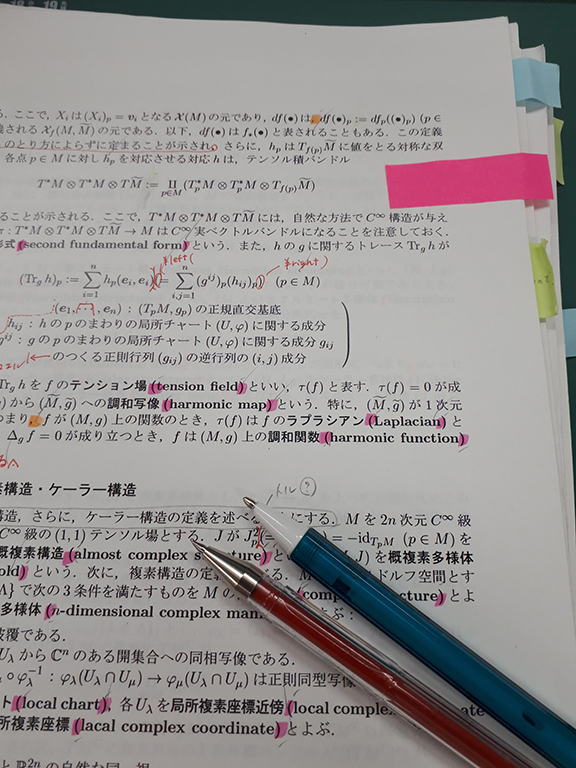 る. ここで, X_i は (X_i)_p = v_i となる X(M) の元であり, df(•) は, df(•)_p := df_p((•)_p) (p ∈
義される X_f(M, M̃) の元である. 以下, df(•) は f_*(•) と表されることもある. この定義
のとり方によらずに定まることが示され, さらに, h_p は T_{f(p)}M̃ に値をとる対称な双
各点 p ∈ M に対し h_p を対応させる対応 h は, テンソル積バンドル
T*M ⊗ T*M ⊗ TM̃ := ⨿_{p∈M} (T_p*M ⊗ T_p*M ⊗ T_{f(p)}M̃)
ることが示される. ここで, T*M ⊗ T*M ⊗ TM̃ には, 自然な方法で C^∞ 構造が与え
π : T*M ⊗ T*M ⊗ TM̃ → M は C^∞ 実ベクトルバンドルになることを注意しておく.
形式 (second fundamental form) という. また, h の g に関するトレース Tr_g h が
¥left( ¥right)
(Tr_g h)_p := Σ_{i=1}^n h_p(e_i, e_i) (= Σ_{i,j=1}^n (g^{ij})_p(h_{ij})_p) (p ∈ M)
(e_1, ..., e_n) : (T_pM, g_p) の正規直交基底
h_{ij} : h の p のまわりの局所チャート (U, φ) に関する成分
g^{ij} : g の p のまわりの局所チャート (U, φ) に関する成分 g_{ij}
のつくる正則行列 (g_{ij}) の逆行列の (i, j) 成分
Tr_g h を f のテンション場 (tension field) といい, τ(f) と表す. τ(f) = 0 が成
g) から (M̃, g̃) への調和写像 (harmonic map) という. 特に, (M̃, g̃) が 1 次元
つまり, f が (M, g) 上の関数のとき, τ(f) は f のラプラシアン (Laplacian) と
Δ_g f = 0 が成り立つとき, f は (M, g) 上の調和関数 (harmonic function)
トル(?)
素構造・ケーラー構造
構造, さらに, ケーラー構造の定義を述べる にする. M を 2n 次元 C^∞ 級
C^∞ 級の (1, 1) テンソル場とする. J が J_p^2 (= ) = −id_{T_pM} (p ∈ M) を
概複素構造 (almost complex structure) と J) を概複素多様体
old) という. 次に, 複素構造の定義 る. M ドルフ空間とす
A} で次の 3 条件を満たすものを M の (comp ucture) とよ
多様体 (n-dimensional complex man よぶ :
被覆である.
U_λ から C^n のある開集合への同相写像である.
∘ φ_λ^{-1} : φ_λ(U_λ ∩ U_μ) → φ_μ(U_λ ∩ U_μ) は正則同型写像
ート (local chart), 各 U_λ を局所複素座標近傍 (local complex coordinate
所複素座標 (lacal complex coordinate) とよぶ.